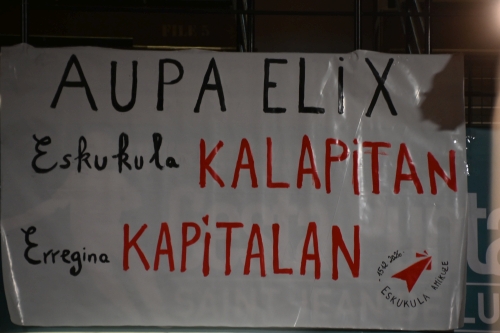 AUPA ELiX
Eskukula KALAPiTAN
Erregina KAPiTALAN
ESKUKULA